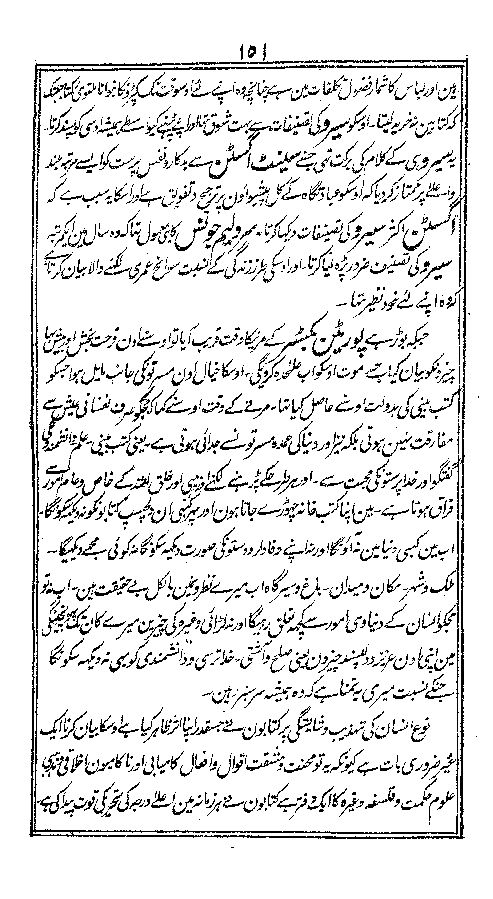 ۱۵۱
ہین اور لباس کا شمار فضول تکلفات مین ہے چنانچہ وہ اپنے لئے اوسوقت تک کپڑونکا بنوانا ملتوی رکھتا جبتک
کہ کتابین نہ خرید لیتا۔ اوسکو سیرو کی تصنیفات سے بہت شوق تھا اور اپنے لئے ہمیشہ اوسی کو پسند کرتا۔
یہ سیرو ہی کے کلام کی برکت تھی جسنے سینٹ اگسٹن سے بدکار و نفس پرست کو ایسے مرتبہ بلند
و اعلے پر ممتاز کر دیا کہ اوسکو عبادتگاہ کے کل پیشواون پر ترجیح و تفوق ہے اور اسکا یہ سبب ہے کہ
اگسٹن اکثر سیرو کی تصنیفات دیکھا کرتا۔ سر ولیم جونس کا بھی معمول تھا کہ وہ سال مین ایک مرتبہ
سیرو کی تصنیف ضرور پڑھ لیا کرتا۔ اور اوسکی طرز زندگی کے نسبت سوانح عمری لکھنے والا بیان کرتا ہے
کہ وہ اپنے لئے خود نظیر تھا۔
جبکہ بوڑھے پیورٹین بکسٹر کے مرنیکا وقت قریب آیا تو اوسنے اون فرحت بخش اور بیش بہا
چیزونکو بیان کیا جسے موت اوسکو اب علحدہ کرتی۔ اوسکا خیال اون مسرتونکی جانب مایل ہوا جسکو
کتب بینی کی بدولت اوسنے حاصل کیا تھا۔ مرنے کے وقت اوسنے کہا کہ مجھکو صرف نفسانی عیش سے
مفارقت نہین ہوتی بلکہ نیز اور دنیا کی عمدہ مسرتونسے جدائی ہوتی ہے۔ یعنی کتب بینی۔ علم۔ دانشمندونکی
گفتگو اور خدا پرستونکی محبت سے۔ اور ہر طرح کے پڑھنے لکھنے اور مذہبی اور خلق اللہ کے خاص و عام امور سے
فراق ہوتا ہے۔ مین اپنا کتب خانہ چھوڑے جاتا ہون اور پھر کبھی ان دلچسپ کتابونکو نہ دیکھونگا۔
اب مین کبھی دنیا مین نہ آونگا اور نہ اپنے وفادار دوستونکی صورت دیکھ سکونگا نہ کوئی مجھے دیکھیگا۔
ملک و شہر۔ مکان و میدان۔ باغ و سیرگاہ اب میرے نظرونمین بالکل بے حقیقت ہین۔ اب نہ تو
مجھکو انسان کے دنیاوی امور سے کچھ تعلق رہیگا اور نہ لڑائی وغیرہ کی خبرین میرے کان تک پہونچینگی
مین اپنی اون عزیز دلپسند چیزون یعنی صلح و آشتی۔ خدا ترسی و دانشمندی کو بھی نہ دیکھ سکونگا
جنکے نسبت میری یہ تمنا ہے کہ وہ ہمیشہ سرسبز رہین۔
نوع انسان کی تہذیب و شایستگی پر کتابون نے جسقدر اپنا اثر ظاہر کیا ہے اوسکا بیان کرنا ایک
غیر ضروری بات ہے کیونکہ یہ تو محنت و مشقت اقوال و افعال کامیابی اور ناکامیون اخلاقی و مذہبی
علوم حکمت و فلسفہ وغیرہ کا ایک دفتر ہے کتابون نے ہر زمانہ مین اعلے درجہ کی تحریر کی قوت پیدا کی ہے